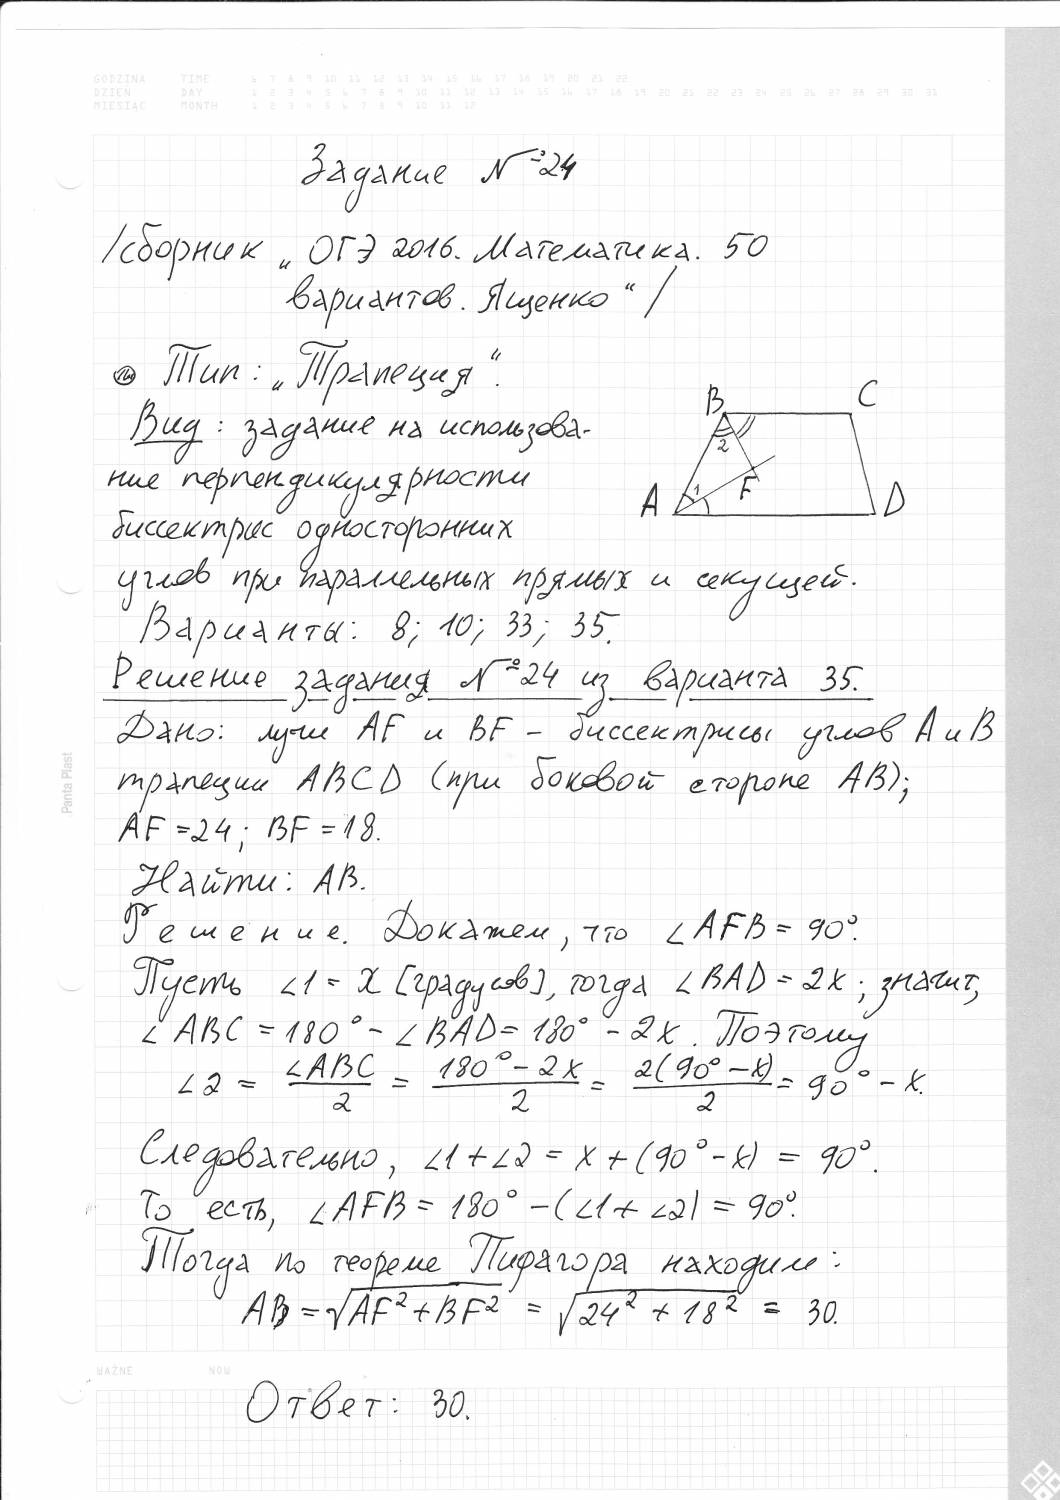 GODZINA TIME 6 7 8 9 10 11 12 13 14 15 16 17 18 19 20 21 22
DZIEŃ DAY 1 2 3 4 5 6 7 8 9 10 11 12 13 14 15 16 17 18 19 20 21 22 23 24 25 26 27 28 29 30 31
MIESIĄC MONTH 1 2 3 4 5 6 7 8 9 10 11 12
Задание №24
/сборник „ОГЭ 2016. Математика. 50
вариантов. Ященко“/
Тип: „Трапеция“.
Вид: задание на использова-
ние перпендикулярности
биссектрис односторонних
углов при параллельных прямых и секущей.
B C
2
A 1 F D
Варианты: 8; 10; 33; 35.
Решение задания №24 из варианта 35.
Дано: лучи AF и BF – биссектрисы углов A и B
трапеции ABCD (при боковой стороне AB);
AF = 24; BF = 18.
Найти: AB.
Решение. Докажем, что ∠AFB = 90°.
Пусть ∠1 = x [градусов], тогда ∠BAD = 2x; значит,
∠ABC = 180° – ∠BAD = 180° – 2x. Поэтому
∠2 = ∠ABC/2 = (180° – 2x)/2 = 2(90° – x)/2 = 90° – x.
Следовательно, ∠1 + ∠2 = x + (90° – x) = 90°.
То есть, ∠AFB = 180° – (∠1 + ∠2) = 90°.
Тогда по теореме Пифагора находим:
AB = √AF² + BF² = √24² + 18² = 30.
WAŻNE NOW
Ответ: 30.
Panta Plast